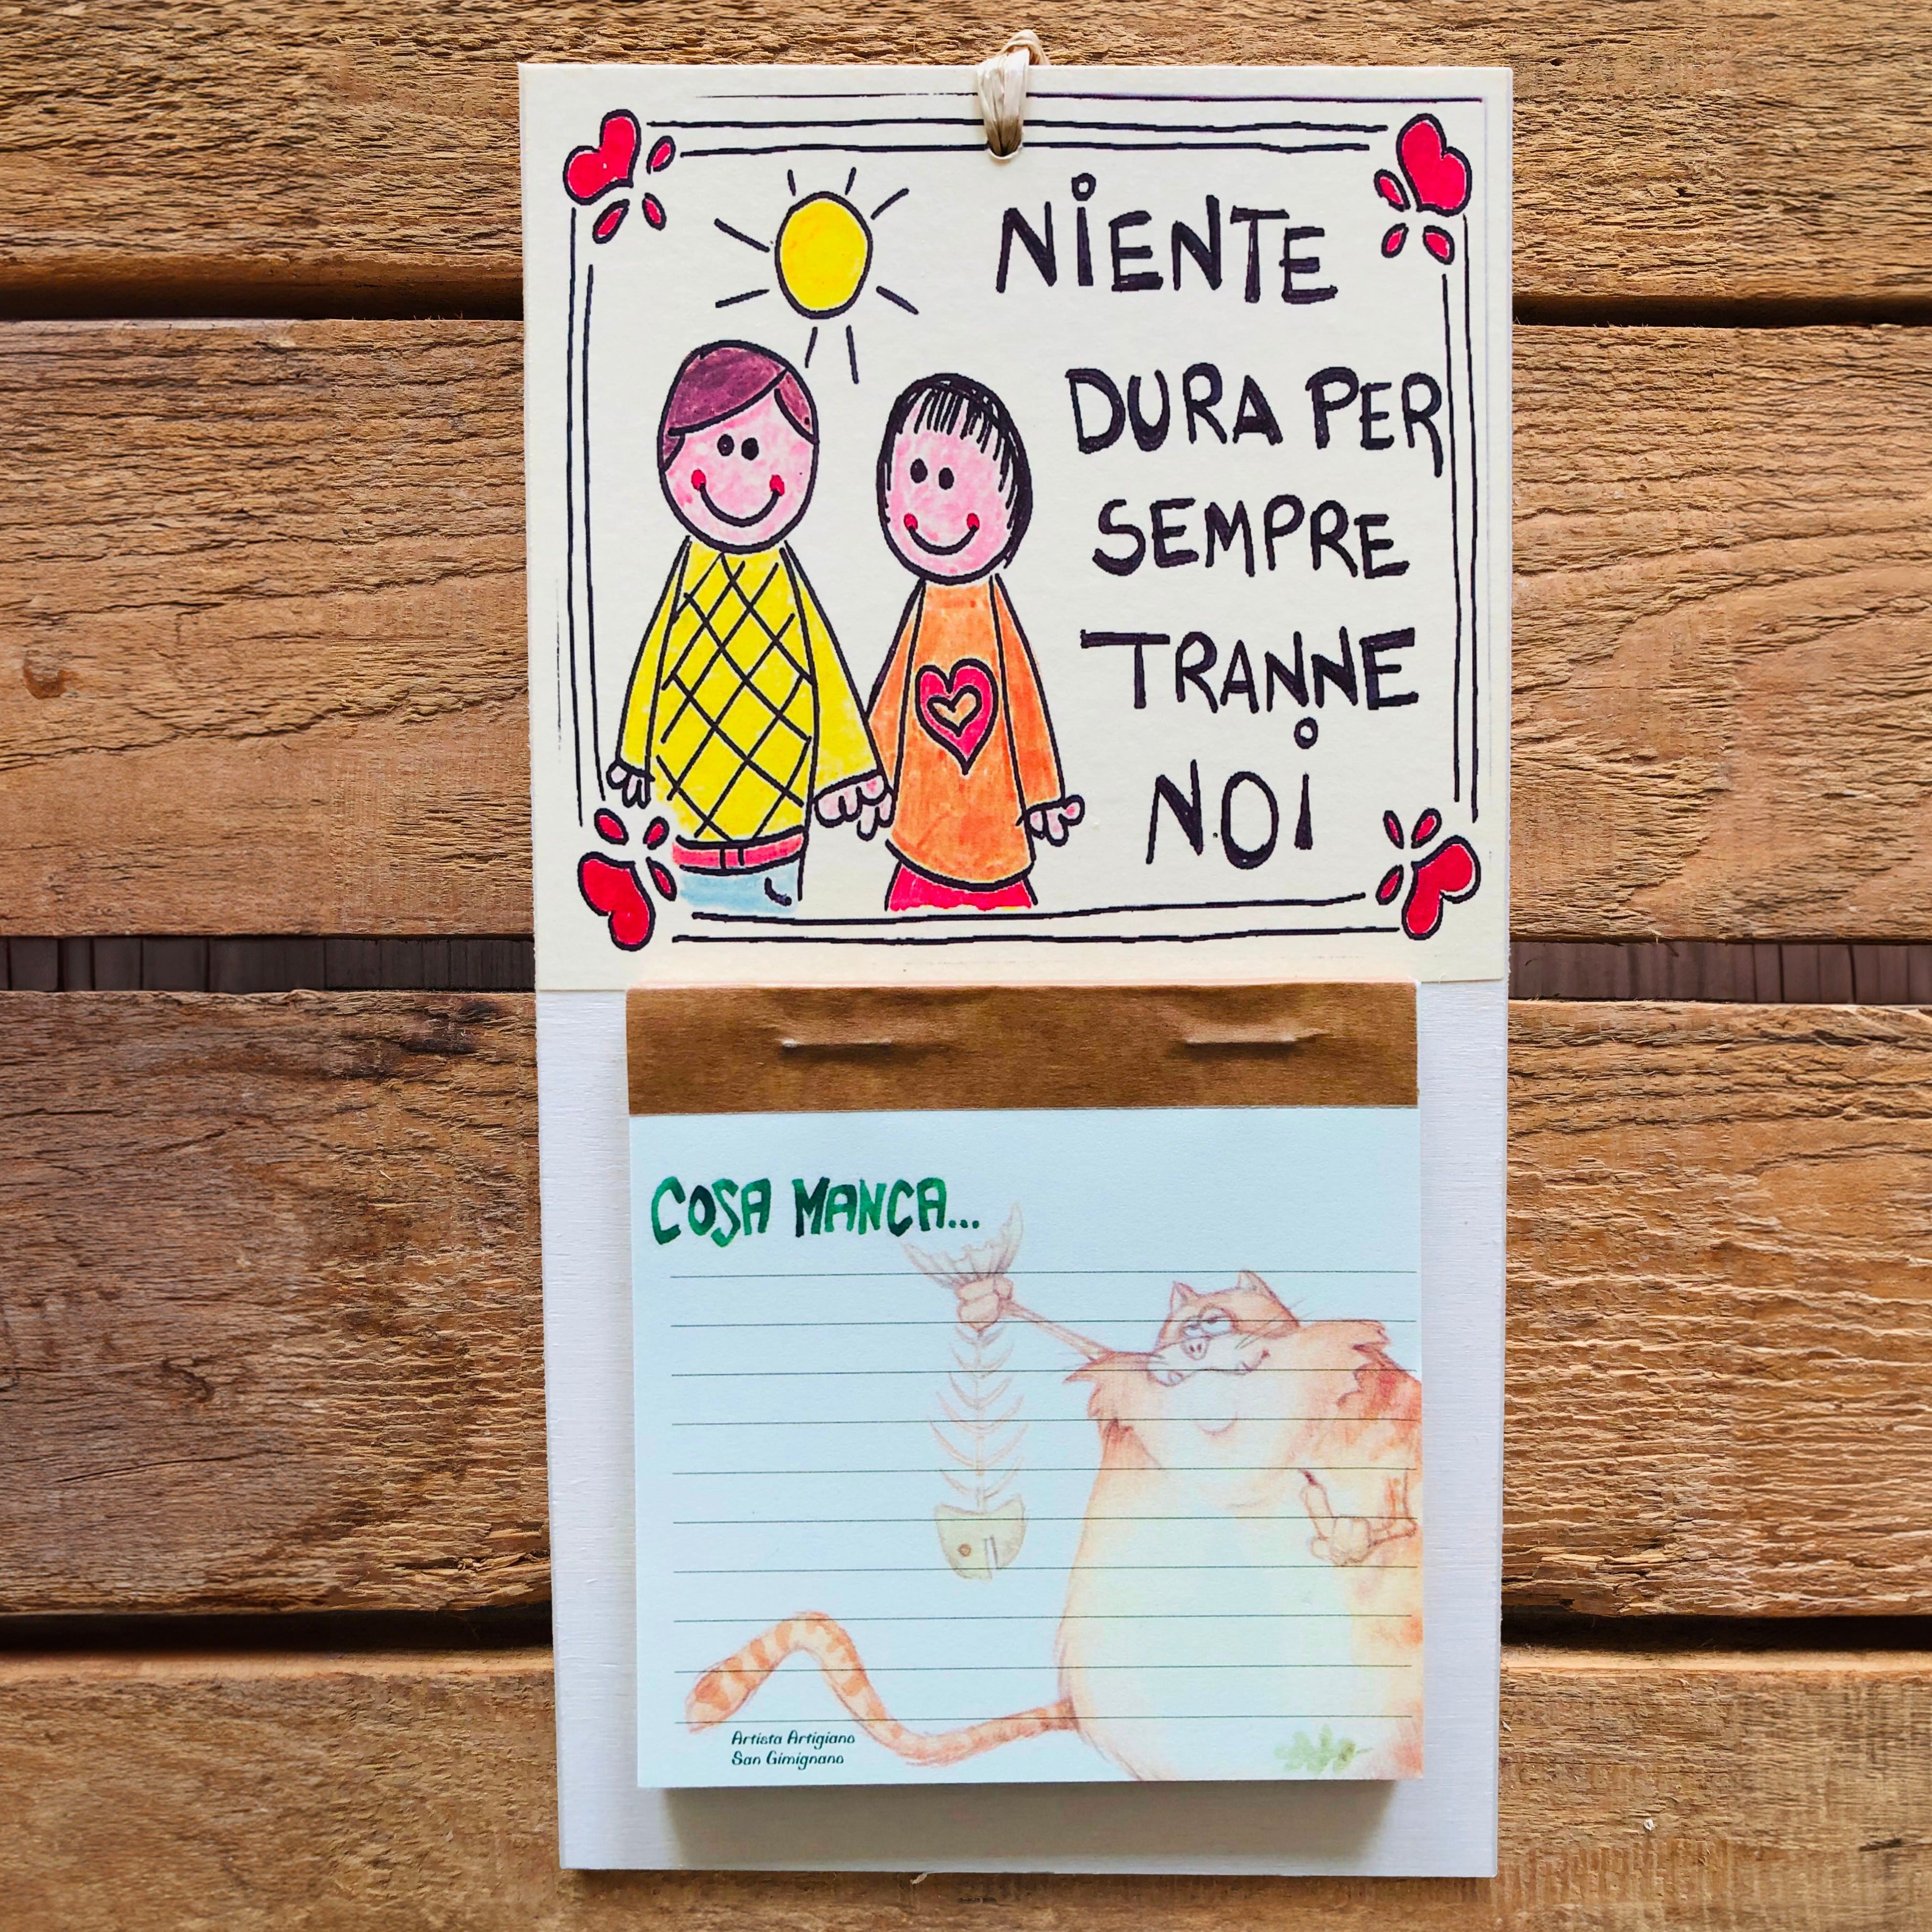 NIENTE
DURA PER
SEMPRE
TRANNE
NOI
COSA MANCA...
Artista Artigiano
San Gimignano